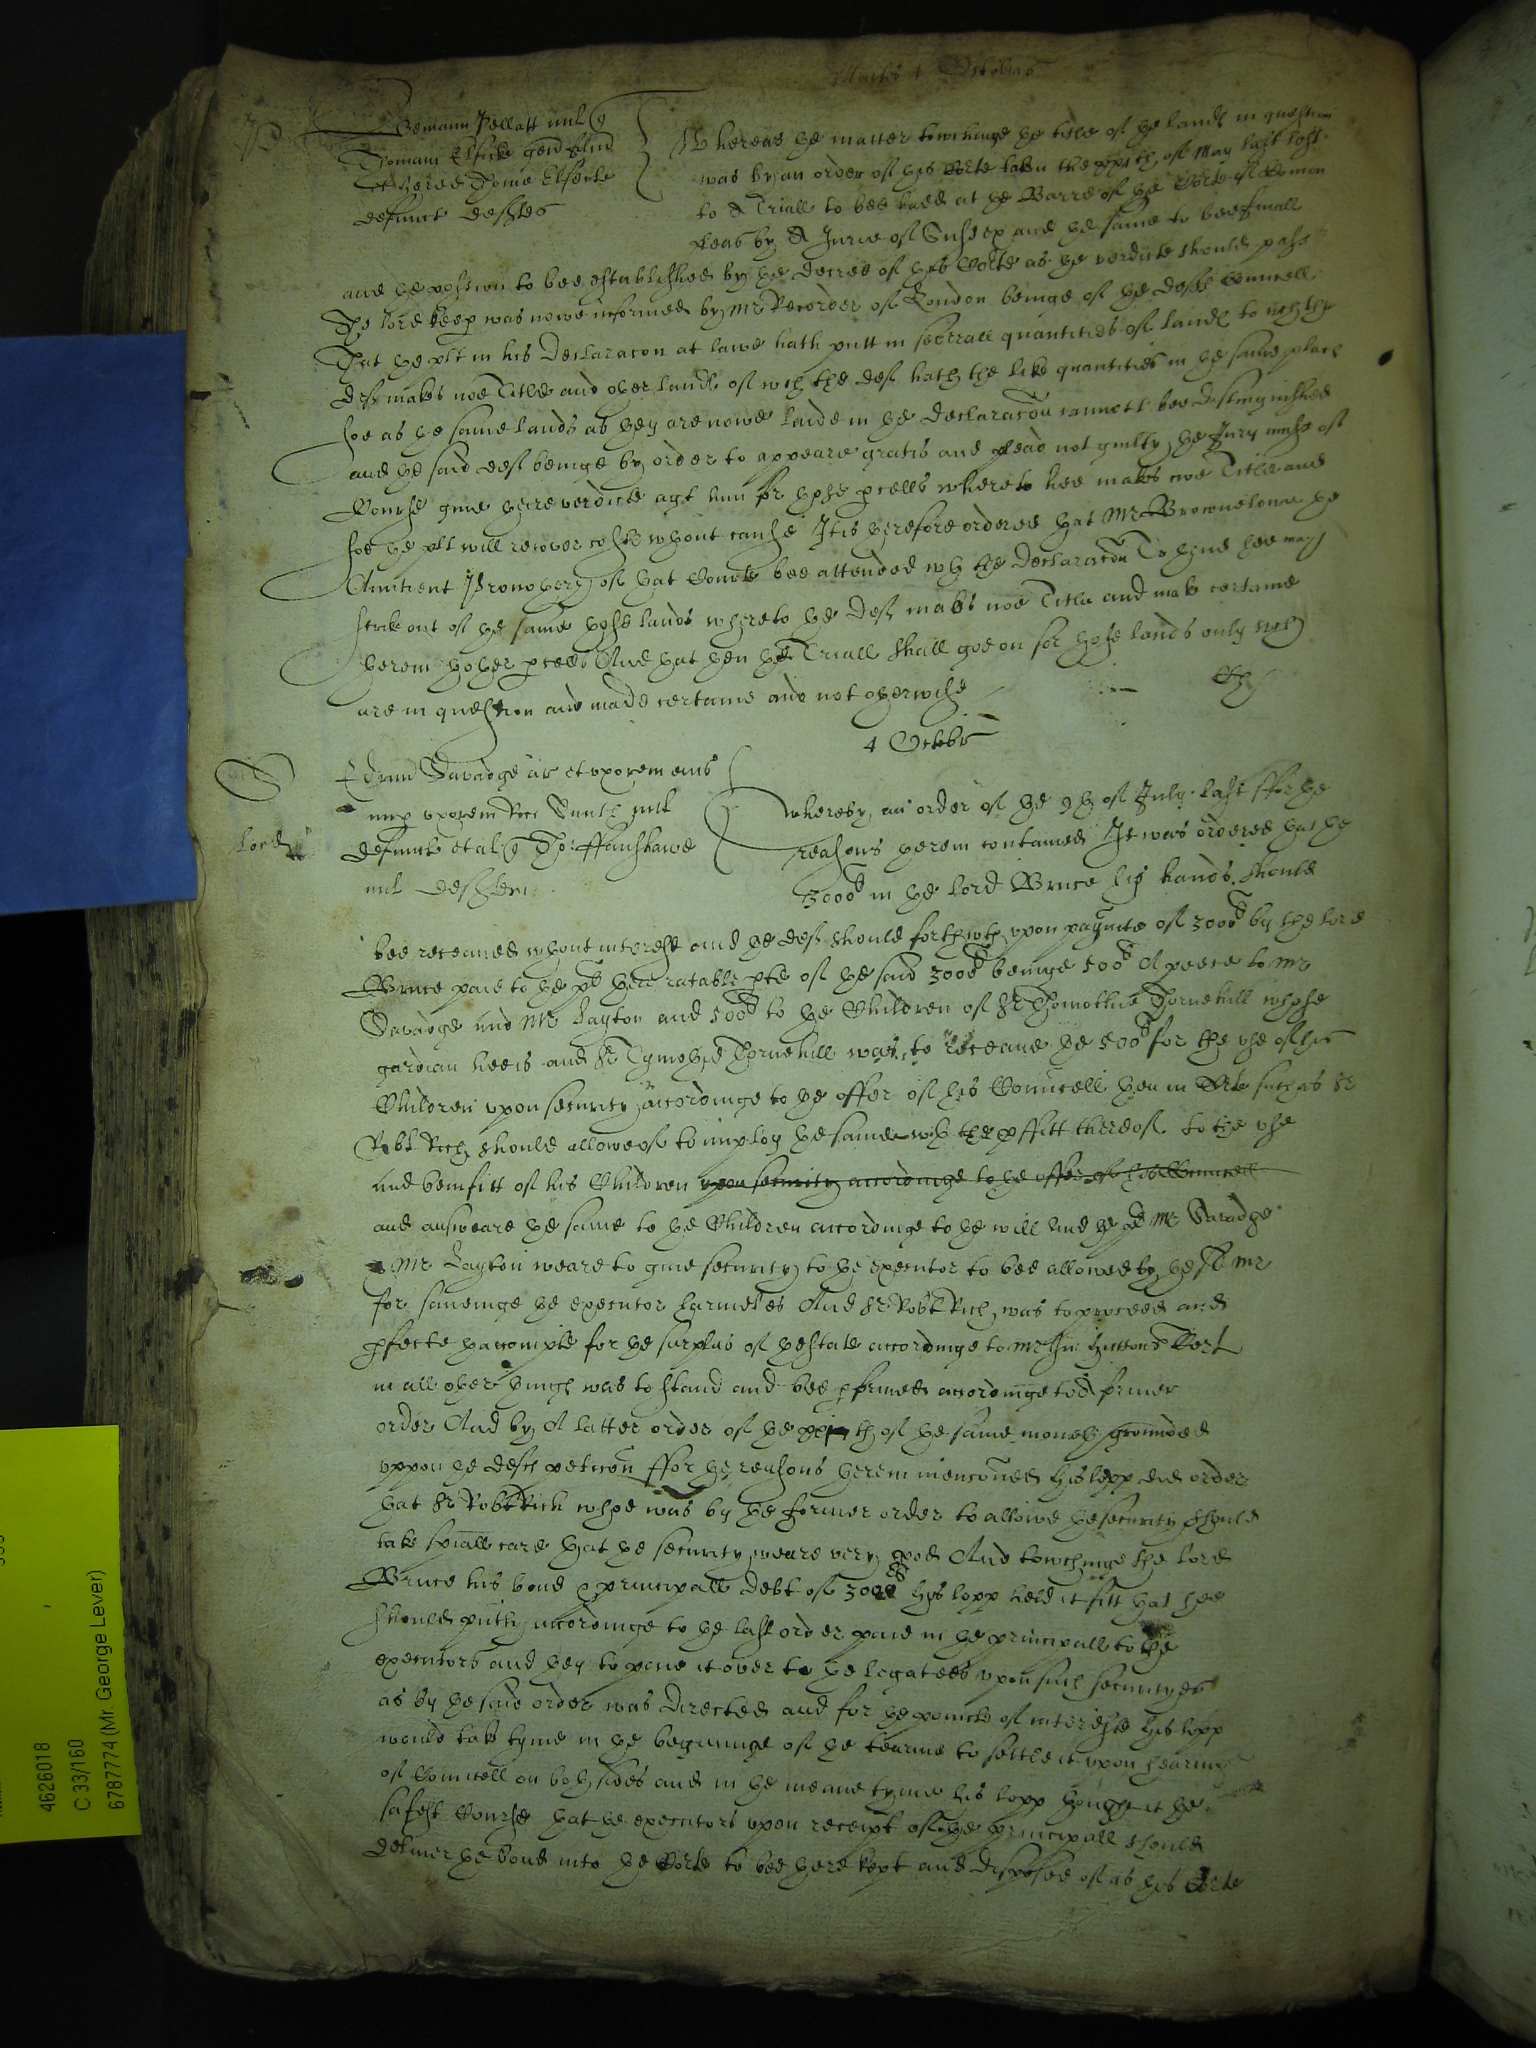 Martis 4 Octobris
Benjamin Pellatt mil
Thomam Elficke gen filiu
et hered Thome Elficke
defunct defdtes
Whereas the matter towchinge the title of the landℓ in question
was by an order of this Corte taken the of May last left
to A Triall to bee had at the Barre of the Corte of Comon
pleas by A Jurie of Sussex and the same to bee finall
and the possion to bee established by the decree of this Corte as the verdicte should passe
The lord keep was nowe informed by Mr Recorder of London beinge of the defts Councell
That the plt in his Declaracon at lawe hath putt in severall quantities of landℓ to wch the
deft makes noe Title and other landℓ of wch the deft hath the like quantities in the same place
soe as the same lands as they are nowe laide in the declaracon cannott bee distinguished
and the said deft beinge by order to appeare gratis and plead not guilty the Jury must of
Course give theire verdicte agt him for those pcells whereto hee makes noe Title and
soe the plt will recover costs wthout cause It is therefore ordered that Mr Brownelowe the
Auntient Pronothery of that Courte bee attended wth the declaracon To thend hee may
strike out of the same those lands whereto the deft makes noe Title and make certaine
therein thother pcells And that then the Triall shall goe on for those lands only wch
are in question and made certaine and not otherwise
4 Octobr
Edrum Savadge ar et uxorem eius
nup uxorem Rici Smith mil
defuncte et al Tho: Ffanshawe
mil defdten
lord
whereby an order of the 9th of July last ffor the
reasons therein contained It was ordered that the
3000ℓ in the lord Bruce his hands should
bee receaved wthout interest and the deft should forthwth upon paymte of 3000ℓ by the lord
Bruce paie to the pℓ theire ratable pte of the said 3000ℓ beinge 500ℓ A peece to Mr
Savadge and Mr Layton and 500ℓ to the Children of Sr Thimothie Thornehill whose
gardian hee is and Sr Tymothie Thornehill was to receave the 500ℓ for the use of his
Children upon security accordinge to the offer of his Councell then in Corte such as Sr
Robt Rich should allowe of to imploy the same wth the pffitt thereof to the use
and benifitt of his Children upon security accordinge to the offer of his Councell
and answeare the same to the Children accordinge to the will And the pℓ Mr Savadge
Mr Layton weare to give security to the executor to bee allowed by the sd Mr
for saveinge the executor harmeles And Sr Robt Rich was to proceed and
pfecte thaccompte for the surplus of thestate accordinge to Mr Jn: Huttons Cert
in all other thingℓ was to stand and bee pformed accordinge to A former
order And by A latter order of the th of the same moneth grounded
uppon the defts peticon ffor the reasons therein mencioned his lopp did order
that Sr Robt Rich whoe was by the former order to allowe the security should
take spiall care that the security weare very good And towchinge the lord
Bruce his bond principall debt of 3000ℓ his lopp held it fitt that hee
should accordinge to the last order paie in the principall to the
executors and they to paie it over to the legatees upon such securityes
as by the said order was directed and for the pointe of interest his lopp
would take tyme in the beginninge of the tearme to settle it upon hearing
of Councell on both sides and in the meane tyme his lopp thought it the
safest Course that the executors upon receipt of the principall should
deliver the bond into the Corte to bee there kept and disposed of as this Corte
4626018
C 33/160
6787774 (Mr. George Lever)